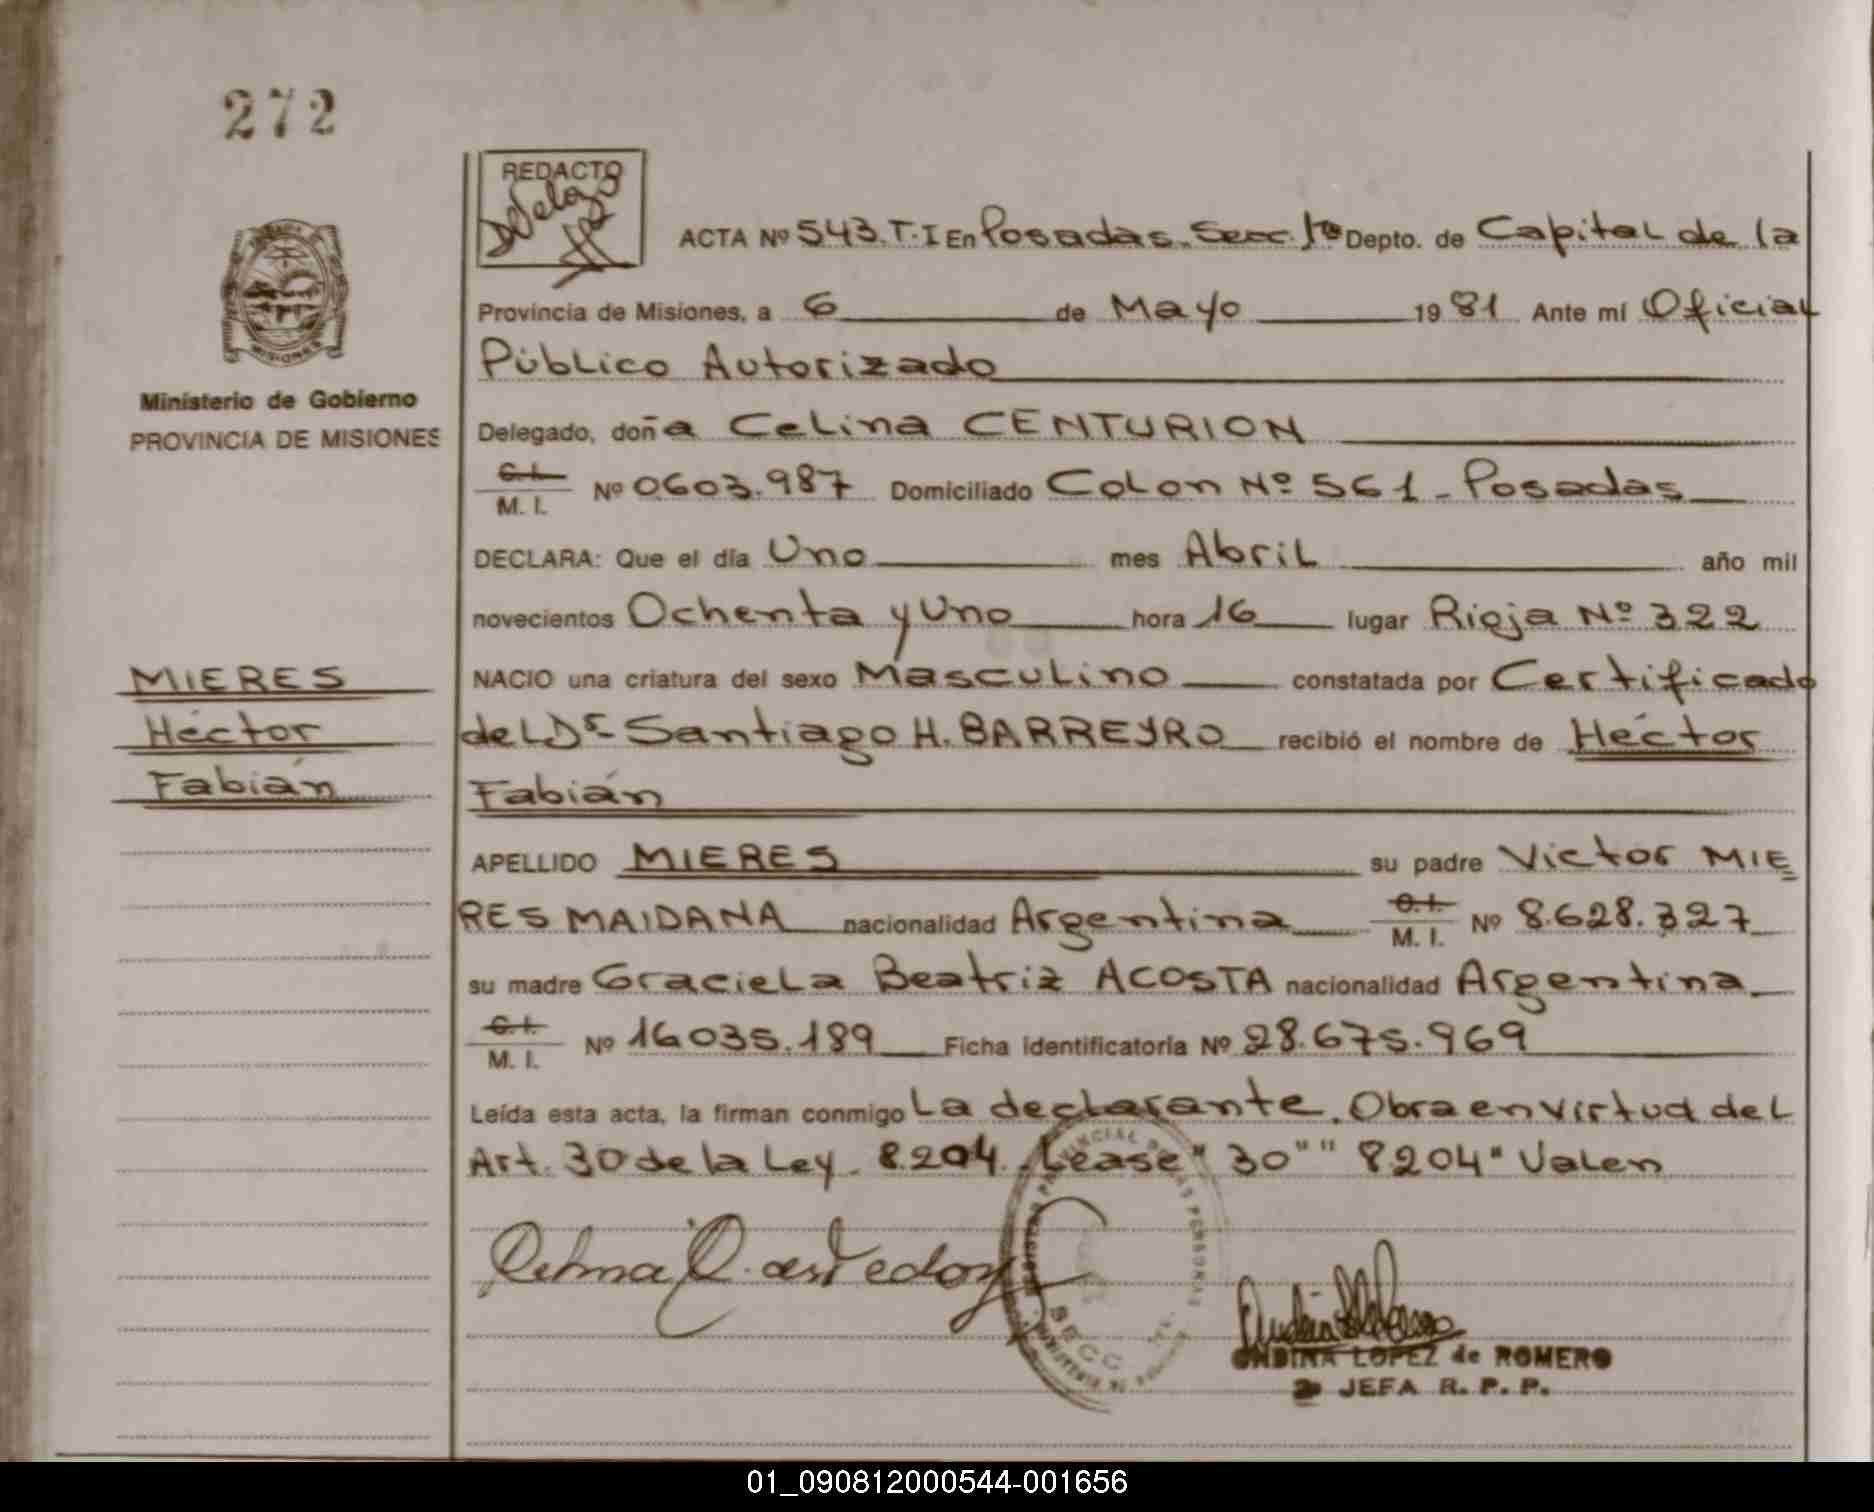 272
REDACTO
ACTA Nº 543.T.I En Posadas. Secc. 1ª Depto. de Capital de la
Provincia de Misiones, a 6 de Mayo 1981 Ante mí Oficial
Público Autorizado
MISIONES
Ministerio de Gobierno
PROVINCIA DE MISIONES
Delegado, doña Celina CENTURION
C.I.
M. I. Nº 0603.987 Domiciliado Colon Nº 561 - Posadas
DECLARA: Que el día Uno mes Abril año mil
novecientos Ochenta y Uno hora 16 lugar Rioja Nº 322
MIERES
Héctor
Fabián
NACIO una criatura del sexo Masculino constatada por Certificado
del Dr- Santiago H. BARREYRO recibió el nombre de Héctor
Fabián
APELLIDO MIERES su padre Victor MIE
RES MAIDANA nacionalidad Argentina C.I. M. I. Nº 8.628.327
su madre Graciela Beatriz ACOSTA nacionalidad Argentina
C.I.
M. I. Nº 16035.189 Ficha identificatoria Nº 28.675.969
Leída esta acta, la firman conmigo La declarante. Obra en virtud del
Art. 30 de la Ley. 8204. Lease "30" "8204" Valen
SECC.
ONDINA LOPEZ de ROMERO
JEFA R. P. P.
01_090812000544-001656